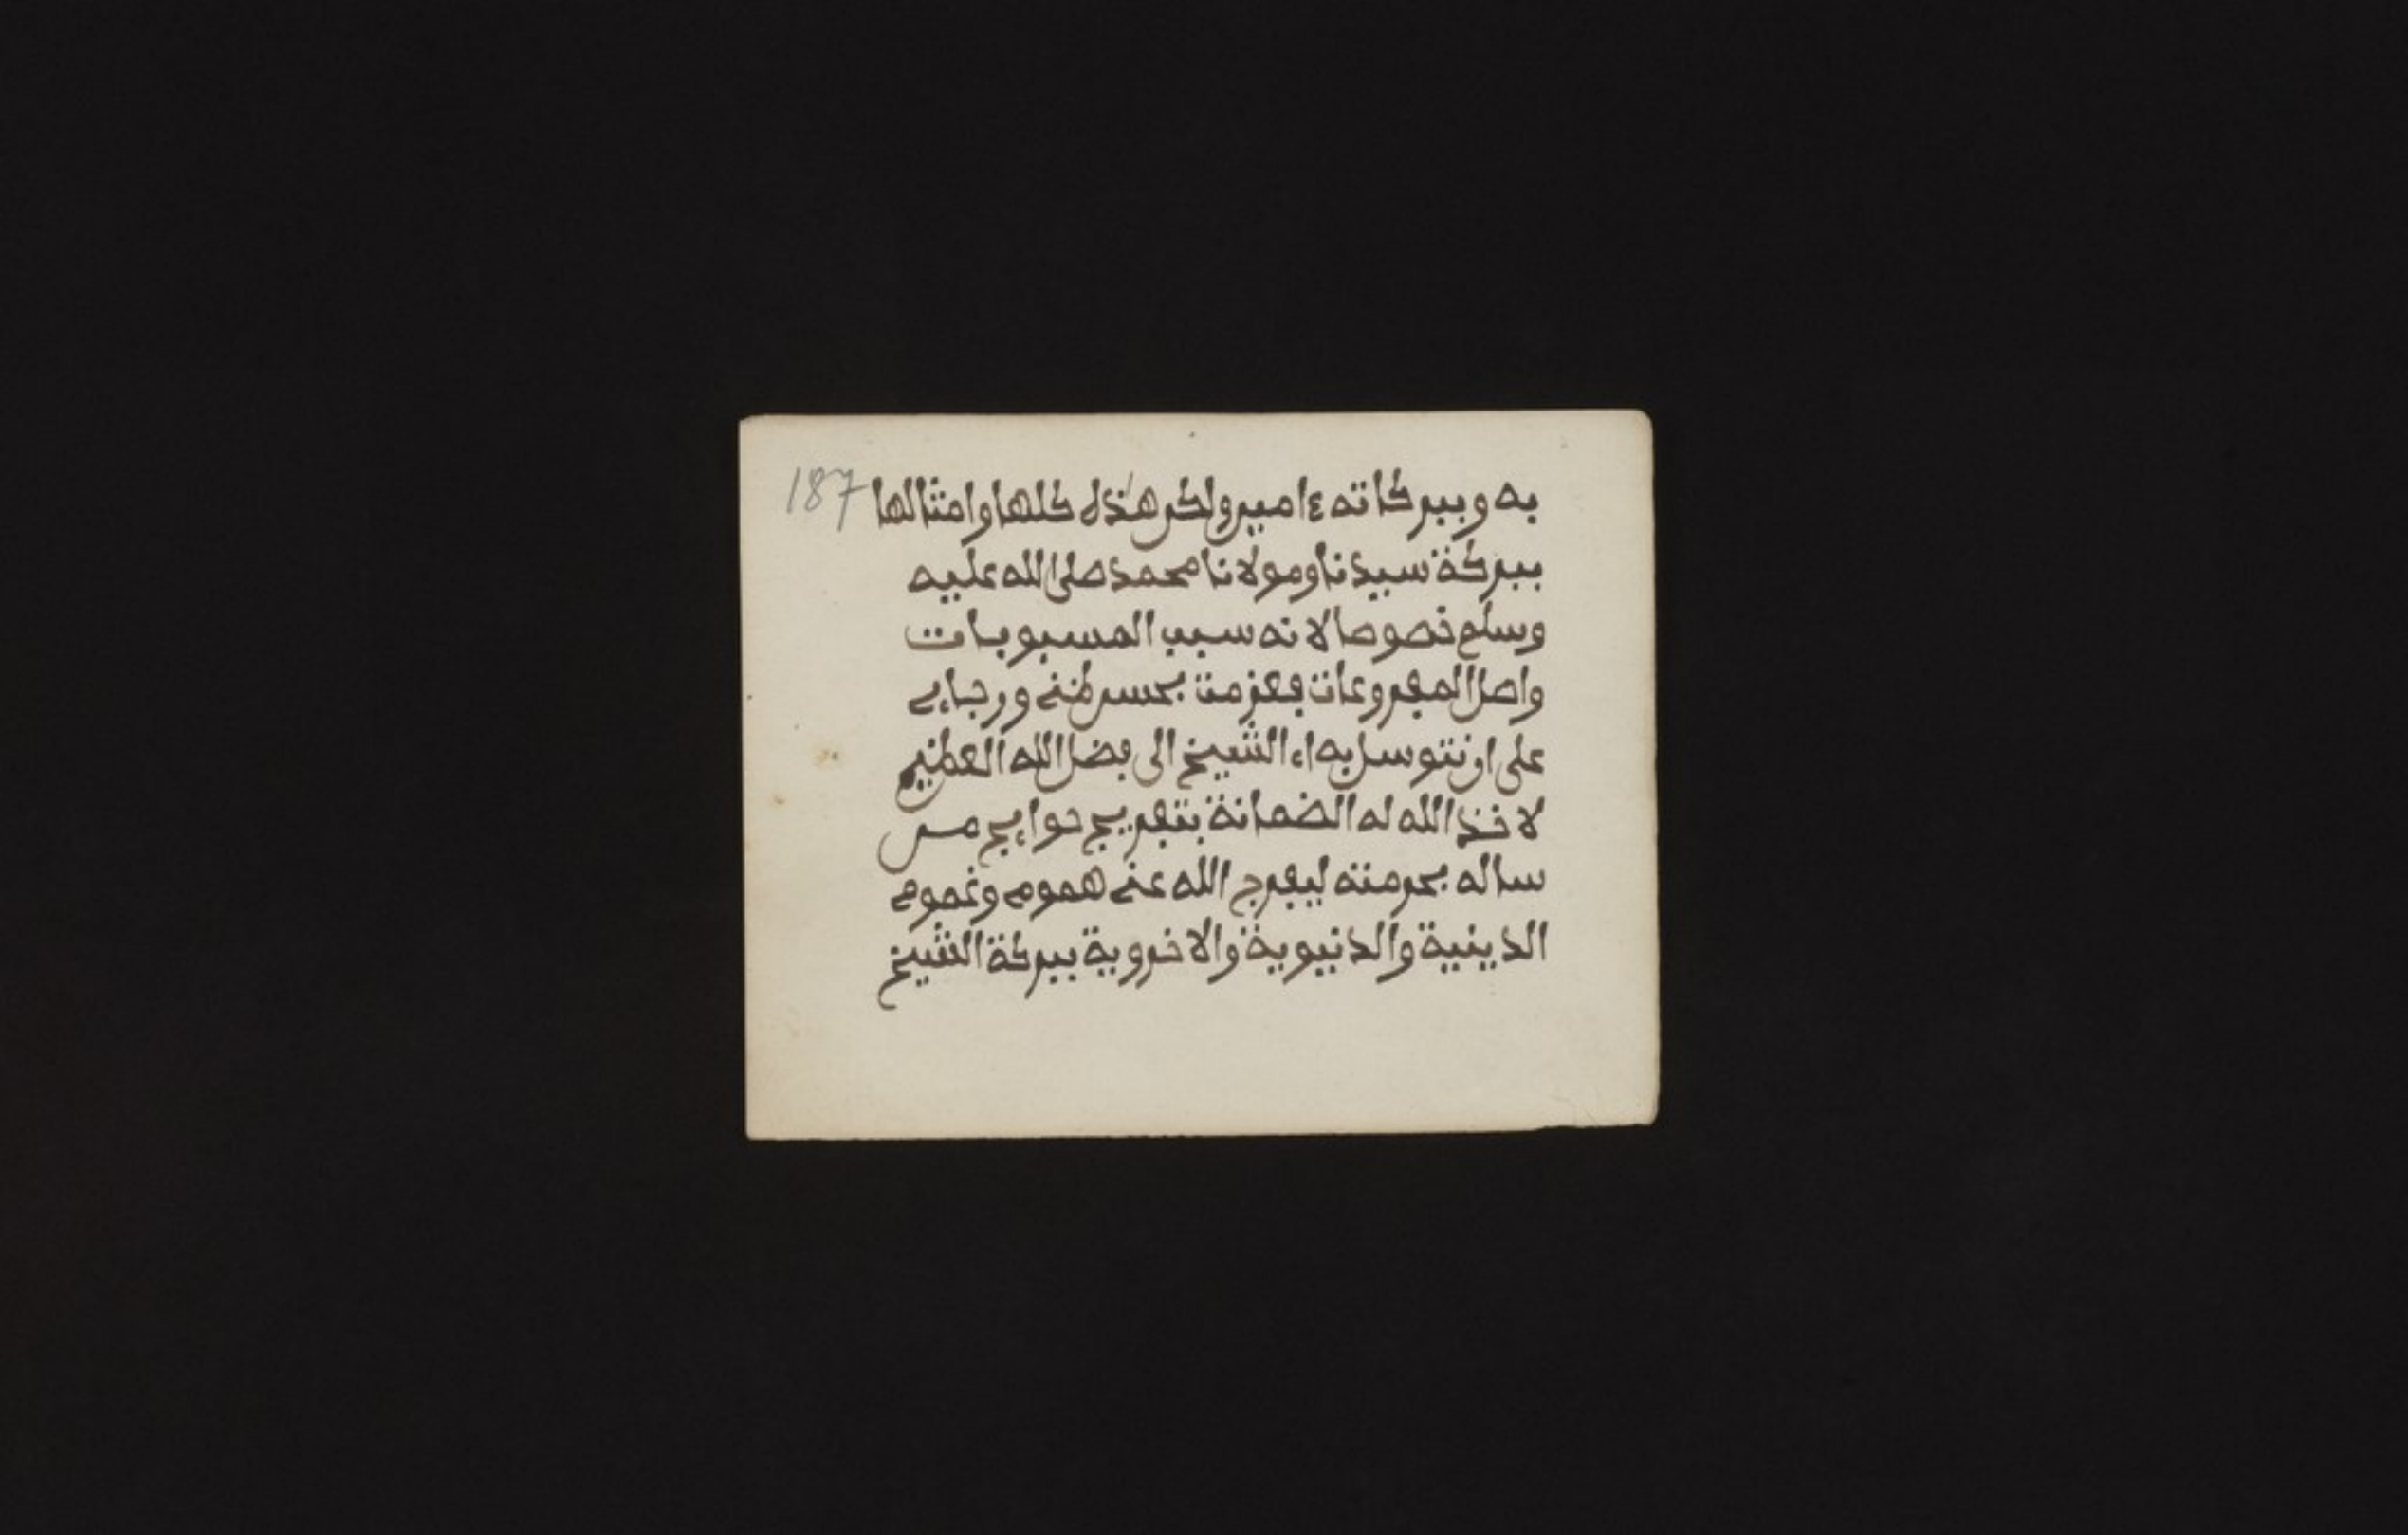 187
به وببركاته ءامين ولكن هذه كلها وامثالها
ببركة سيدنا ومولانا محمد صلى الله عليه
وسلم خصوصا لانه سبب المسبوبات
واصل المفروعات فعزمت بحسن ظني ورجاءي
على ان نتوسل به اء الشيخ الى فضل الله العظيم
لاخذ الله له الضمانة بتفريج حواءج من
ساله بحرمته ليفرج الله عني همومي وغمومي
الدينية والدنيوية والاخروية ببركة الشيخ